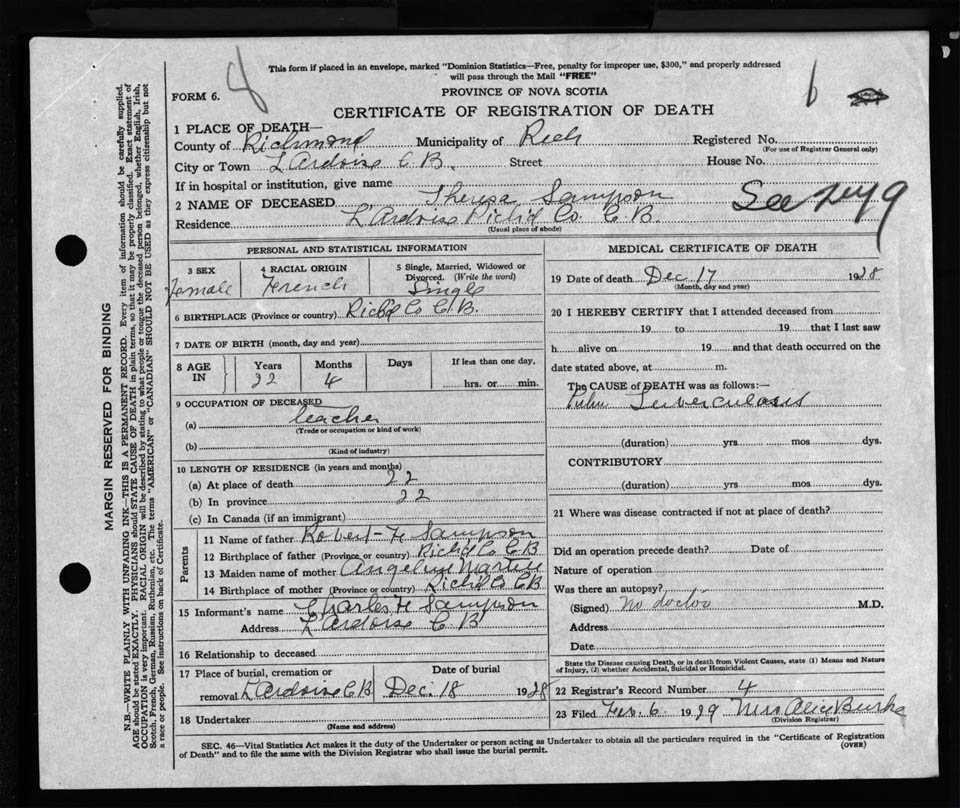 This form if placed in an envelope, marked "Dominion Statistics—Free, penalty for improper use, $300," and properly addressed
will pass through the Mail "FREE"
FORM 6.
PROVINCE OF NOVA SCOTIA
CERTIFICATE OF REGISTRATION OF DEATH
1 PLACE OF DEATH—
County of Richmond Municipality of Rich Registered No.
(For use of Registrar General only)
City or Town L'Ardoise C B. Street House No.
If in hospital or institution, give name
2 NAME OF DECEASED Theresa Sampson
See 1929
Residence L'Ardoise Rich'd Co. C.B.
(Usual place of abode)
PERSONAL AND STATISTICAL INFORMATION
3 SEX
Female
4 RACIAL ORIGIN
French
5 Single, Married, Widowed or
Divorced. (Write the word)
Single
6 BIRTHPLACE (Province or country) Rich'd Co C.B.
7 DATE OF BIRTH (month, day and year)
8 AGE
IN
Years
22
Months
4
Days
If less than one day,
hrs. or min.
9 OCCUPATION OF DECEASED
(a) teacher
(Trade or occupation or kind of work)
(b)
(Kind of industry)
10 LENGTH OF RESIDENCE (in years and months)
(a) At place of death 22
(b) In province 22
(c) In Canada (if an immigrant)
Parents
11 Name of father Robert H Sampson
12 Birthplace of father (Province or country) Rich'd Co C B
13 Maiden name of mother Angeline Martell
14 Birthplace of mother (Province or country) Rich'd Co C B
15 Informant's name Charles H Sampson
Address L'Ardoise C B
16 Relationship to deceased
17 Place of burial, cremation or
removal L'Ardoise C B.
Date of burial
Dec. 18 1928
18 Undertaker
(Name and address)
MEDICAL CERTIFICATE OF DEATH
19 Date of death Dec 17 1928
(Month, day and year)
20 I HEREBY CERTIFY that I attended deceased from
19 to 19 that I last saw
h alive on 19 and that death occurred on the
date stated above, at m.
The CAUSE of DEATH was as follows:—
Pulm Tuberculosis
(duration) yrs. mos dys.
CONTRIBUTORY
(duration) yrs mos dys.
21 Where was disease contracted if not at place of death?
Did an operation precede death? Date of
Nature of operation
Was there an autopsy?
(Signed) No doctor M.D.
Address
Date
State the Disease causing Death, or in death from Violent Causes, state (1) Means and Nature
of Injury, (2) whether Accidental, Suicidal or Homicidal.
22 Registrar's Record Number 4
23 Filed Feb. 6 1929 Mrs Alice Burke
(Division Registrar)
SEC. 46—Vital Statistics Act makes it the duty of the Undertaker or person acting as Undertaker to obtain all the particulars required in the "Certificate of Registration
of Death" and to file the same with the Division Registrar who shall issue the burial permit.
(OVER)
MARGIN RESERVED FOR BINDING
N.B.—WRITE PLAINLY WITH UNFADING INK—THIS IS A PERMANENT RECORD. Every item of information should be carefully supplied.
AGE should be stated EXACTLY. PHYSICIANS should STATE CAUSE OF DEATH in plain terms, so that it may be properly classified. Exact statement of
OCCUPATION is very important. RACIAL ORIGIN will be described by stating to what people or tongue the deceased person belonged, whether English, Irish,
Scotch, French, German, Russian, Ruthenian, etc. The terms "AMERICAN" or "CANADIAN" SHOULD NOT BE USED as they express citizenship but not
a race or people. See instructions on back of Certificate.